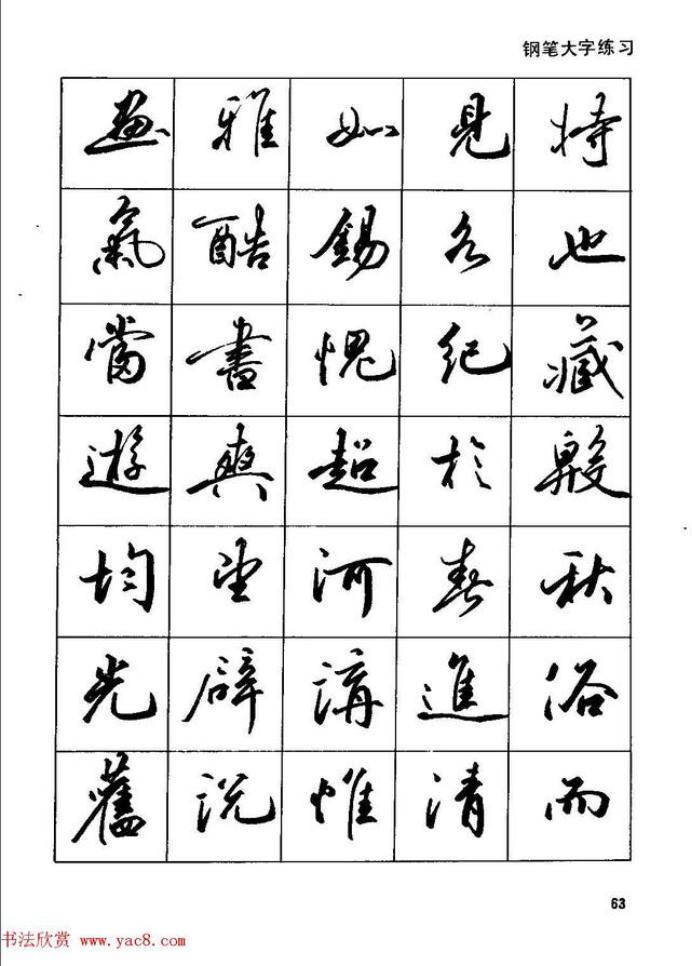 钢笔大字练习
畫雅如見特
氣酷錫名也
當書愧纪藏
遊與超於殿
均望河春秋
光辟講進俗
舊说惟清而
63
书法欣赏 www.yac8.com